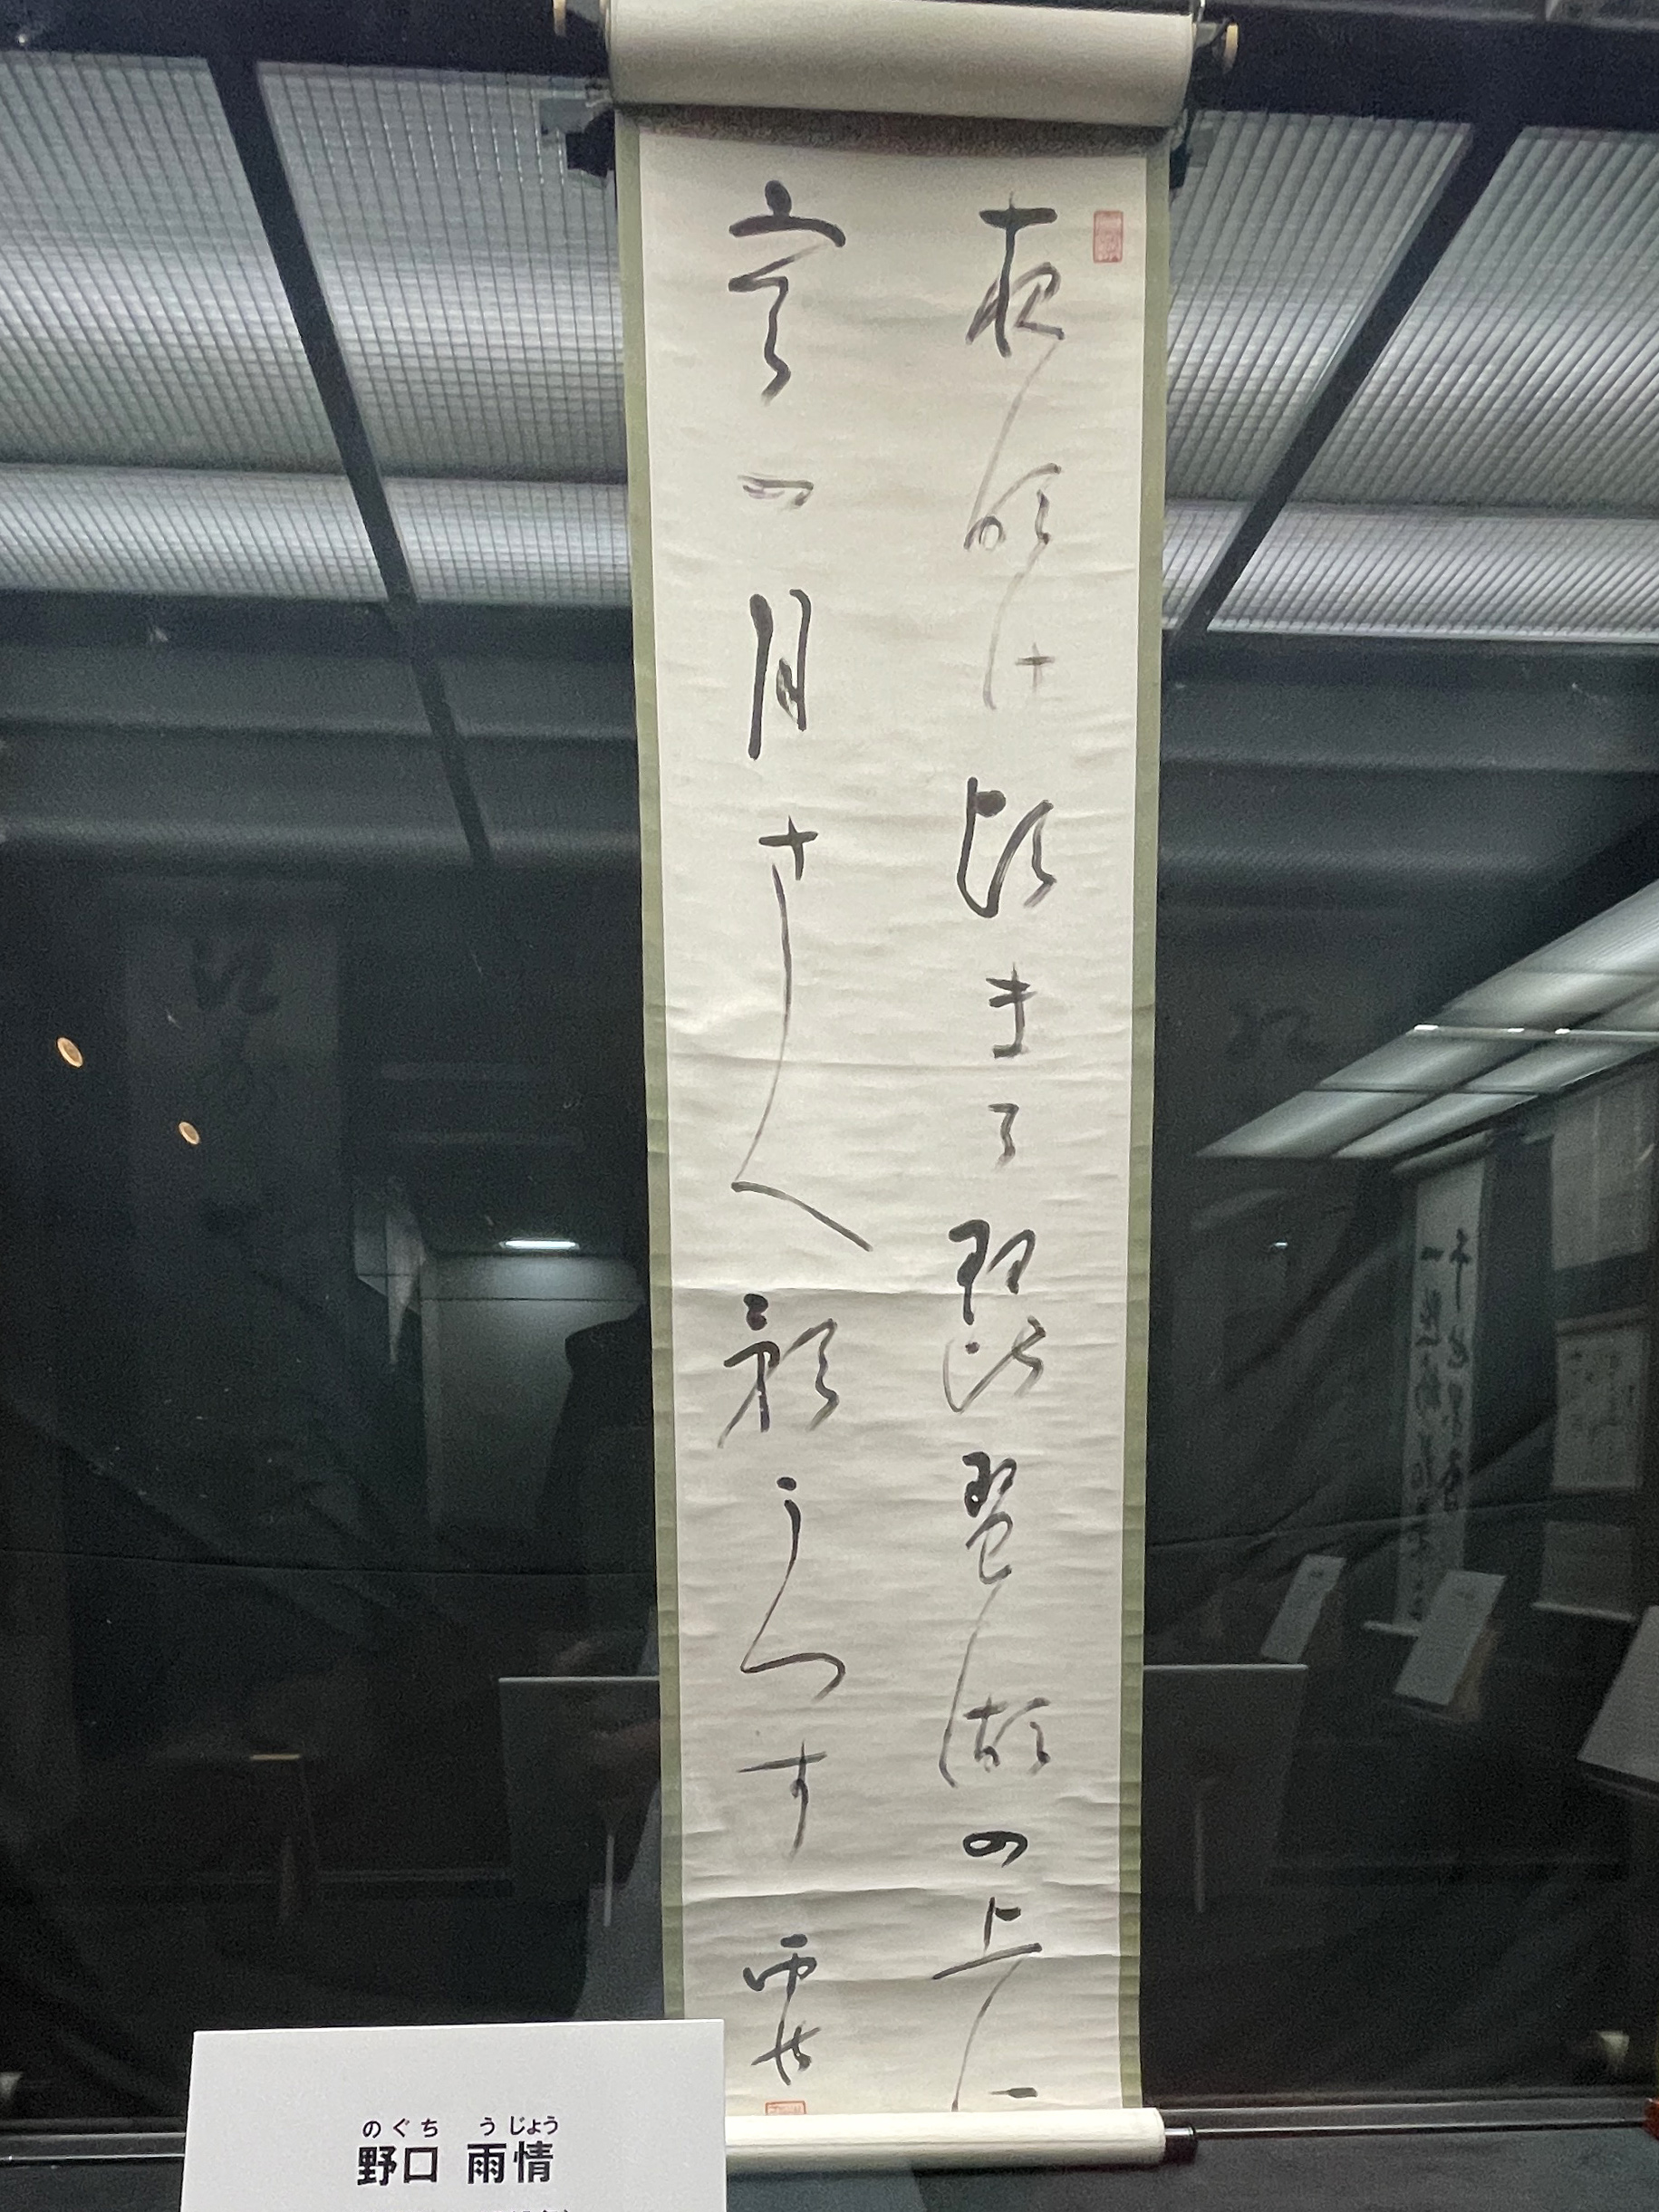 夜明け頃まて琵琶湖の上に
宵の月さへ影うつす 雨情
のぐち うじょう
野口 雨情